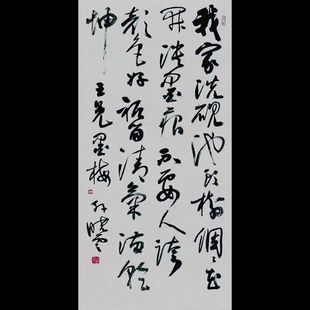 我家洗硯池頭樹個個花
開淡墨痕不要人誇
顏色好祇留清氣滿乾
坤
王冕墨梅 孫曉雲